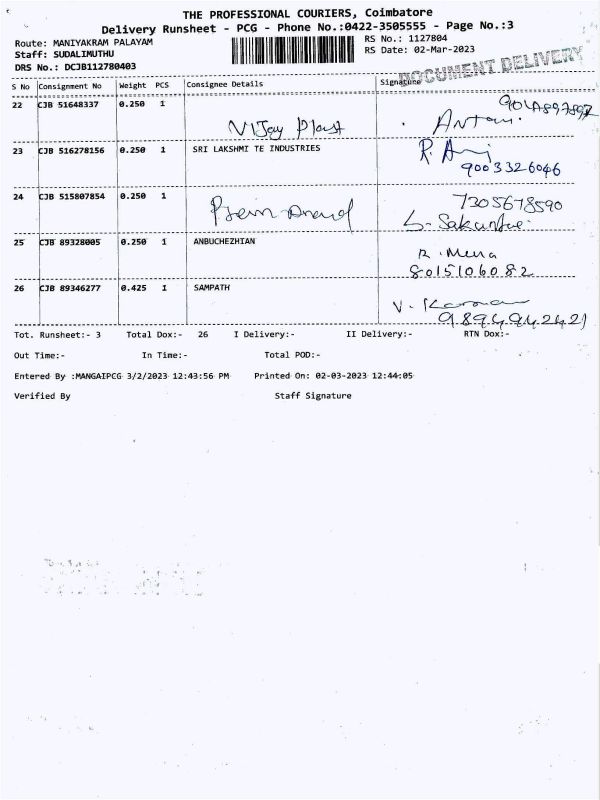 THE PROFESSIONAL COURIERS, Coimbatore
Delivery Runsheet - PCG - Phone No.:0422-3505555 - Page No.:3
Route: MANIYAKRAM PALAYAM
Staff: SUDALIMUTHU
DRS No.: DCJB112780403
RS No.: 1127804
RS Date: 02-Mar-2023
DOCUMENT DELIVERY
S No Consignment No Weight PCS Consignee Details Signature
22 CJB 51648337 0.250 1 Vijay Plast Antony
23 CJB 516278156 0.250 1 SRI LAKSHMI TE INDUSTRIES
9003326046
24 CJB 515807854 0.250 1 Prem Anand 7305678590
25 CJB 89328005 0.250 1 ANBUCHEZHIAN R. Mena
8015106082
26 CJB 89346277 0.425 1 SAMPATH
9894942421
Tot. Runsheet:- 3 Total Dox:- 26 I Delivery:- II Delivery:- RTN Dox:-
Out Time:- In Time:- Total POD:-
Entered By :MANGAIPCG 3/2/2023 12:43:56 PM Printed On: 02-03-2023 12:44:05
Verified By Staff Signature